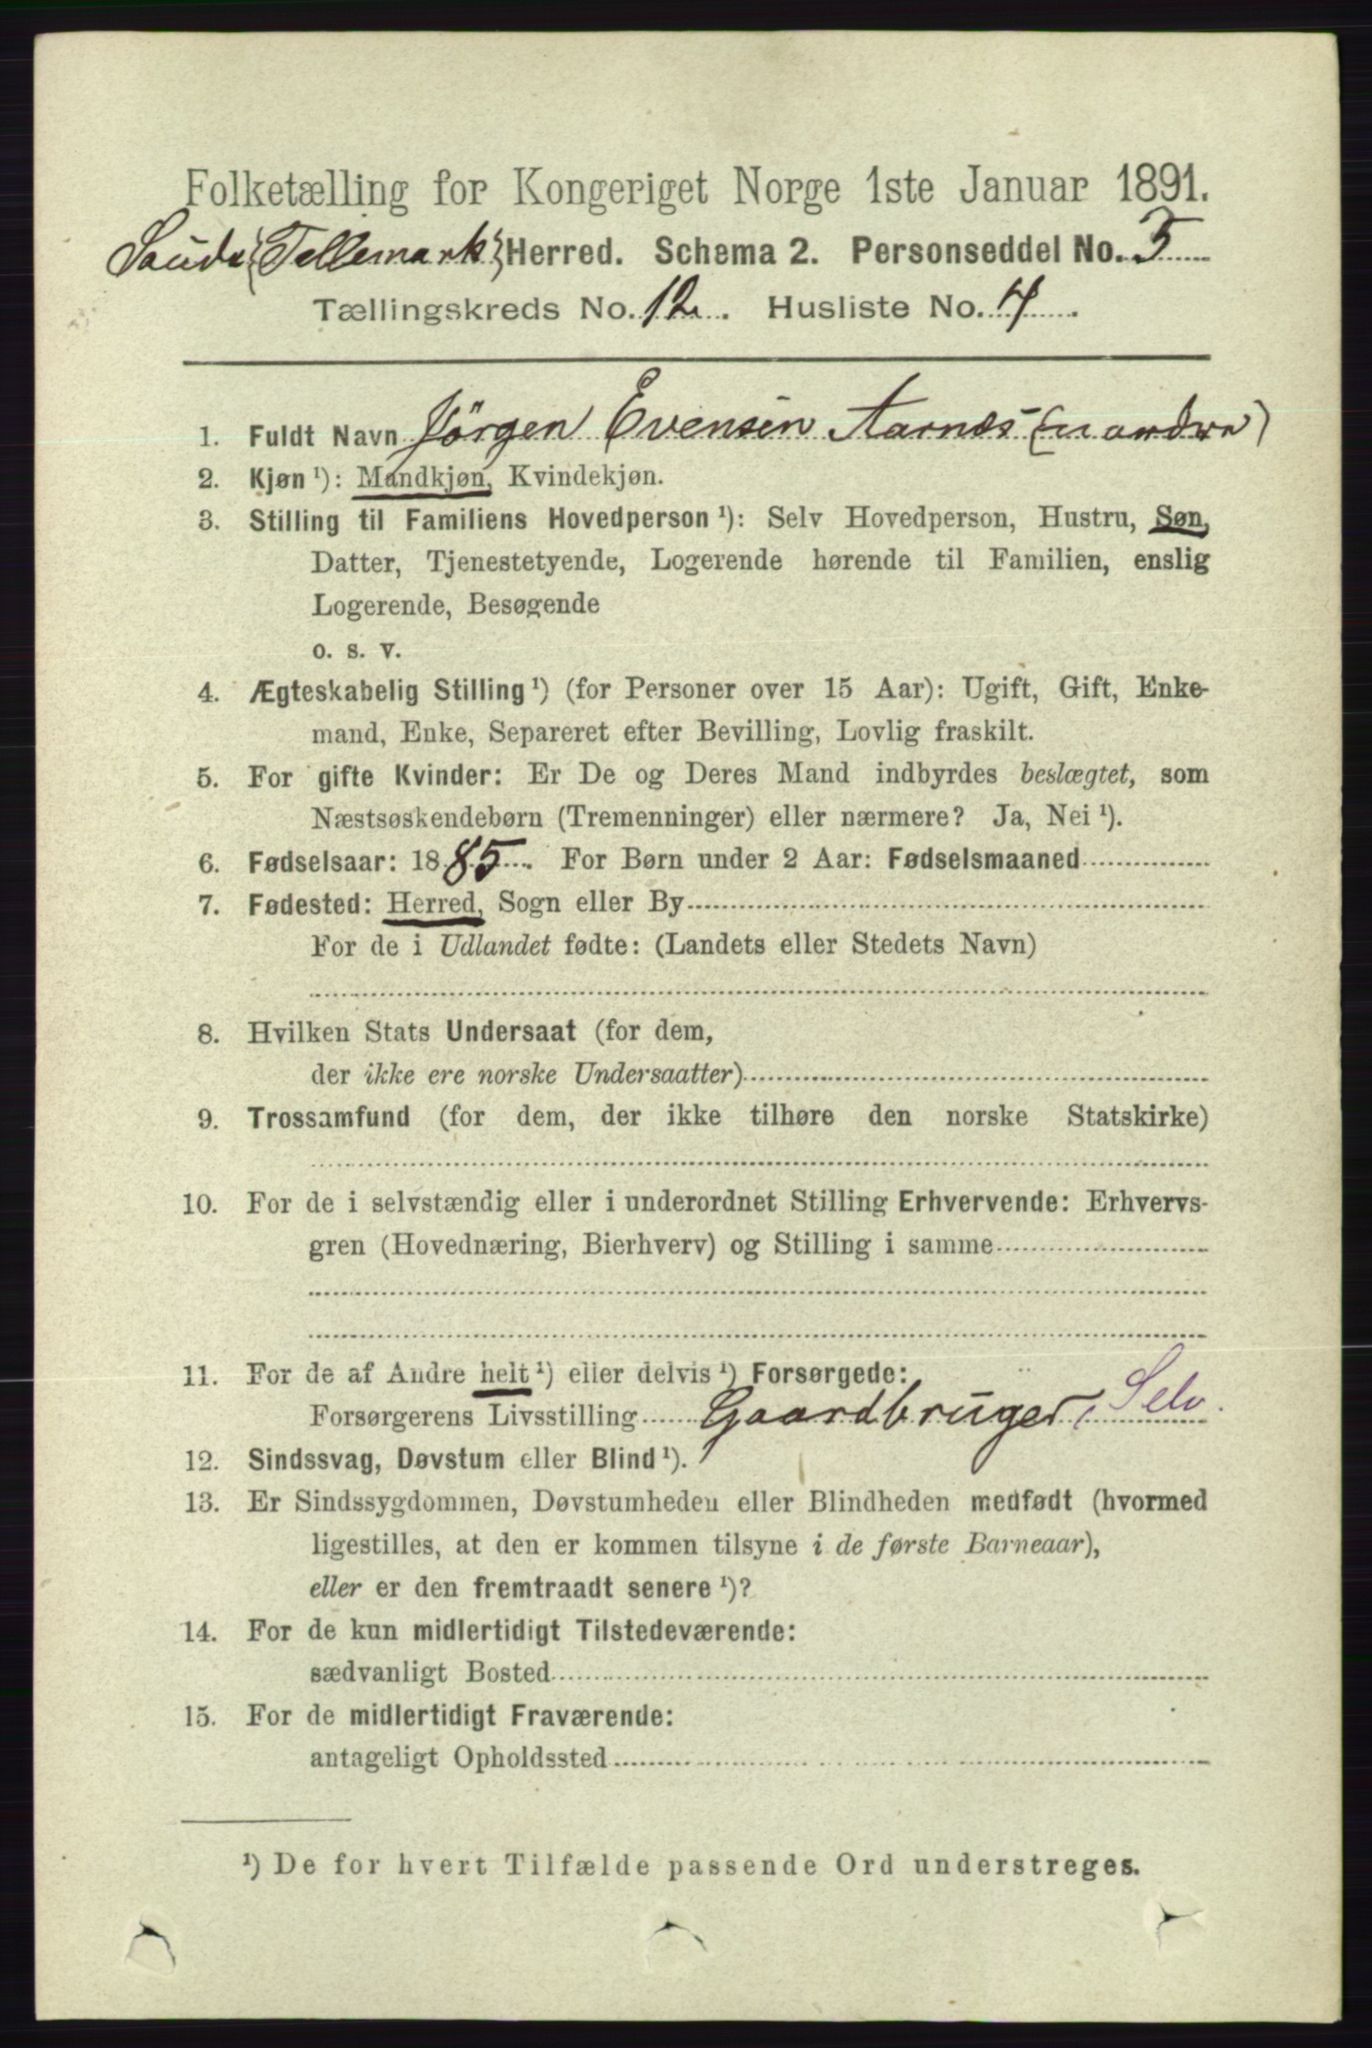 Folketælling for Kongeriget Norge 1ste Januar 1891.
Saude (Tellemark) Herred. Schema 2. Personseddel No. 3
Tællingskreds No. 12. Husliste No. 4.
1. Fuldt Navn Jörgen Evensen Aarnæs (nordre)
2. Kjøn ¹): Mandkjøn, Kvindekjøn.
3. Stilling til Familiens Hovedperson ¹): Selv Hovedperson, Hustru, Søn,
Datter, Tjenestetyende, Logerende hørende til Familien, enslig
Logerende, Besøgende
o. s. v.
4. Ægteskabelig Stilling ¹) (for Personer over 15 Aar): Ugift, Gift, Enke-
mand, Enke, Separeret efter Bevilling, Lovlig fraskilt.
5. For gifte Kvinder: Er De og Deres Mand indbyrdes beslægtet, som
Næstsøskendebørn (Tremenninger) eller nærmere? Ja, Nei ¹).
6. Fødselsaar: 1885. For Børn under 2 Aar: Fødselsmaaned
7. Fødested: Herred, Sogn eller By
For de i Udlandet fødte: (Landets eller Stedets Navn)
8. Hvilken Stats Undersaat (for dem,
der ikke ere norske Undersaatter)
9. Trossamfund (for dem, der ikke tilhøre den norske Statskirke)
10. For de i selvstændig eller i underordnet Stilling Erhvervende: Erhvervs-
gren (Hovednæring, Bierhverv) og Stilling i samme
11. For de af Andre helt ¹) eller delvis ¹) Forsørgede:
Forsørgerens Livsstilling Gaardbruger, Selv.
12. Sindssvag, Døvstum eller Blind ¹).
13. Er Sindssygdommen, Døvstumheden eller Blindheden medfødt (hvormed
ligestilles, at den er kommen tilsyne i de første Barneaar),
eller er den fremtraadt senere ¹)?
14. For de kun midlertidigt Tilstedeværende:
sædvanligt Bosted
15. For de midlertidigt Fraværende:
antageligt Opholdssted
¹) De for hvert Tilfælde passende Ord understreges.